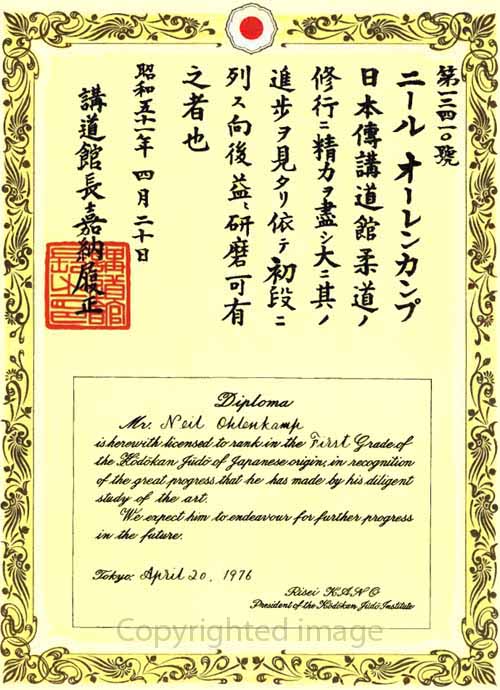 第一三四一〇號
ニール オーレンカンプ
日本傳講道館柔道ノ
修行ニ精力ヲ盡シ大ニ其ノ
進歩ヲ見タリ依テ初段ニ
列ス向後益〻研磨可有
之者也
昭和五十一年四月二十日
講道館長嘉納履正
講道館
長之印
Diploma
Mr. Neil Ohlenkamp
is herewith licensed to rank in the First Grade of
the Kōdōkan Jūdō of Japanese origin, in recognition
of the great progress that he has made by his diligent
study of the art.
We expect him to endeavour for further progress
in the future.
Tokyo: April 20, 1976
Risei KANO
President of the Kōdōkan Jūdō Institute
Copyrighted image